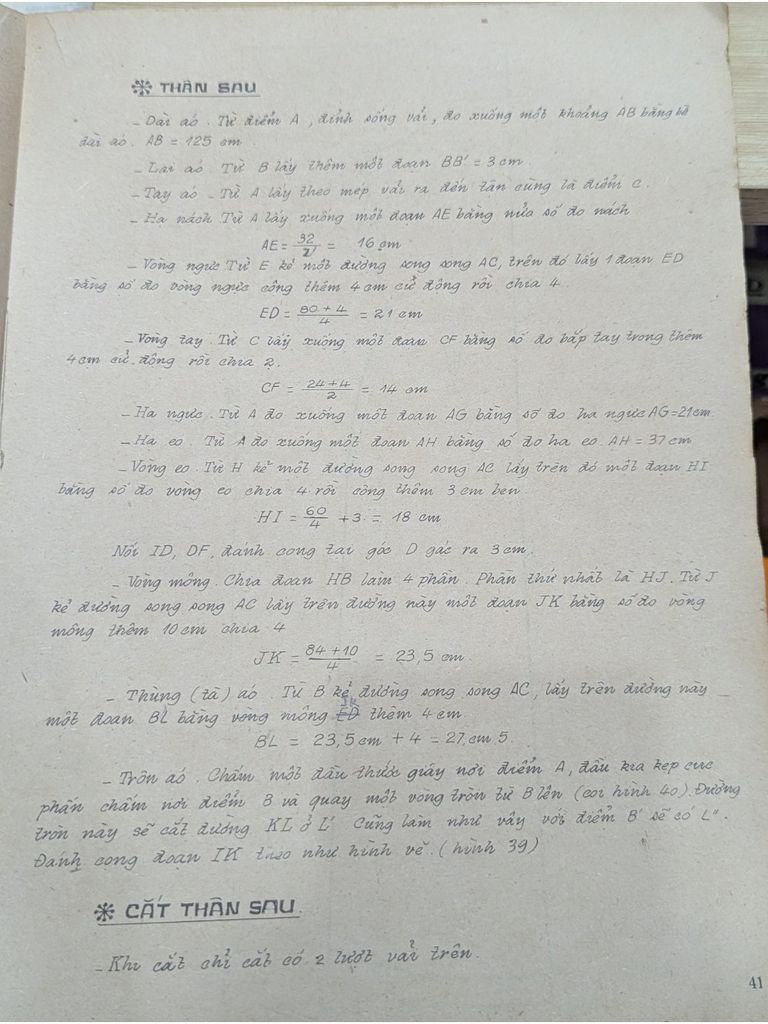 ❇ THÂN SAU
_ Dài áo. Từ điểm A, đỉnh sống vải, đo xuống một khoảng AB bằng bề
dài áo. AB = 125 cm.
_ Lai áo. Từ B lấy thêm một đoạn BB' = 3 cm.
_ Tay áo _ Từ A lấy theo mép vải ra đến tận cùng là điểm C.
_ Hạ nách Từ A lấy xuống một đoạn AE bằng nửa số đo nách
AE = 32/2 = 16 cm
_ Vòng ngực Từ E kẻ một đường song song AC, trên đó lấy 1 đoạn ED
bằng số đo vòng ngực cộng thêm 4 cm cử động rồi chia 4.
ED = 80 + 4/4 = 21 cm
_ Vòng tay. Từ C lấy xuống một đoạn CF bằng số đo bắp tay trong thêm
4 cm cử động rồi chia 2.
CF = 24 + 4/2 = 14 cm
_ Hạ ngực. Từ A đo xuống một đoạn AG bằng số đo hạ ngực AG = 21 cm
_ Hạ eo. Từ A đo xuống một đoạn AH bằng số đo hạ eo. AH = 37 cm
_ Vòng eo. Từ H kẻ một đường song song AC lấy trên đó một đoạn HI
bằng số đo vòng eo chia 4 rồi cộng thêm 3 cm ben
HI = 60/4 + 3 = 18 cm
Nối ID, DF, đánh cong tại góc D gác ra 3 cm.
_ Vòng mông. Chia đoạn HB làm 4 phần. Phần thứ nhất là HJ. Từ J
kẻ đường song song AC lấy trên đường này một đoạn JK bằng số đo vòng
mông thêm 10 cm chia 4
JK = 84 + 10/4 = 23,5 cm.
_ Thùng (tà) áo. Từ B kẻ đường song song AC, lấy trên đường này
một đoạn BL bằng vòng mông JK thêm 4 cm
BL = 23,5 cm + 4 = 27 cm 5
_ Tròn áo. Chấm một đầu thước giây nơi điểm A, đầu kia kẹp cục
phấn chấm nơi điểm B và quay một vòng tròn từ B lên (coi hình 40). Đường
tròn này sẽ cắt đường KL ở L' Cũng làm như vậy với điểm B' sẽ có L".
Đánh cong đoạn IK theo như hình vẽ. (hình 39)
❇ CẮT THÂN SAU.
_ Khi cắt chỉ cắt có 2 lượt vải trên.
41